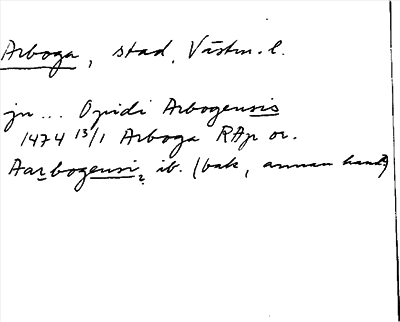 Arboga, stad, Västm. l.
jn ... Opidi Arbogensis
1474 13/1 Arboga RAp or.
Aarbogensi, ib. (bak, annan hand?)